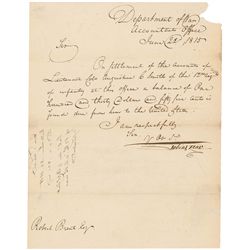 Department of War
Accountants Office
June 22 1815
Sir
On settlement of the accounts of
Lieutenant Colo Augustine C Smith of the
of infantry at this office a balance of One
hundred and thirty dollars and fifty five cents is
found due from him to the United States
I am respectfully
Sir
Yr Ob St
Robert Brent Esq